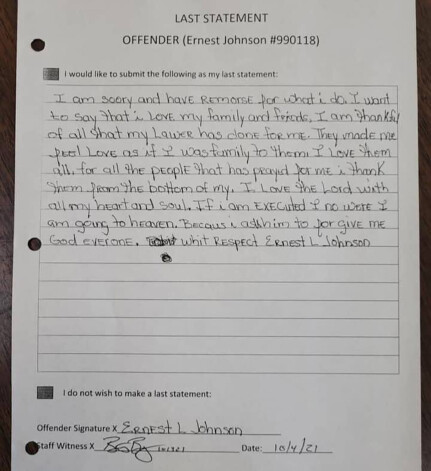 LAST STATEMENT
OFFENDER (Ernest Johnson #990118)
I would like to submit the following as my last statement:
I am soory and have Remorse for what i do. I want
to say that i Love my family and friends. I am thankful
of all that my Lawer has done for me. They made me
feel Love as if I was family to them. I Love them
all. for all the people that has prayed for me i thank
them from the bottom of my. I Love the Lord with
all my heart and soul. If i am executed I no were I
am going to heaven. Becaus i ask him to forgive me
God everone. whit Respect Ernest L Johnson
I do not wish to make a last statement:
Offender Signature X Ernest L Johnson
Staff Witness X Date: 10/4/21